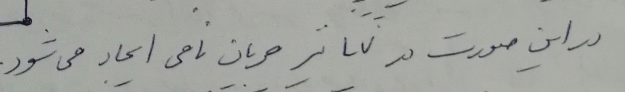 در این صورت در ترانس جریان ناحی ایجاد می شود.